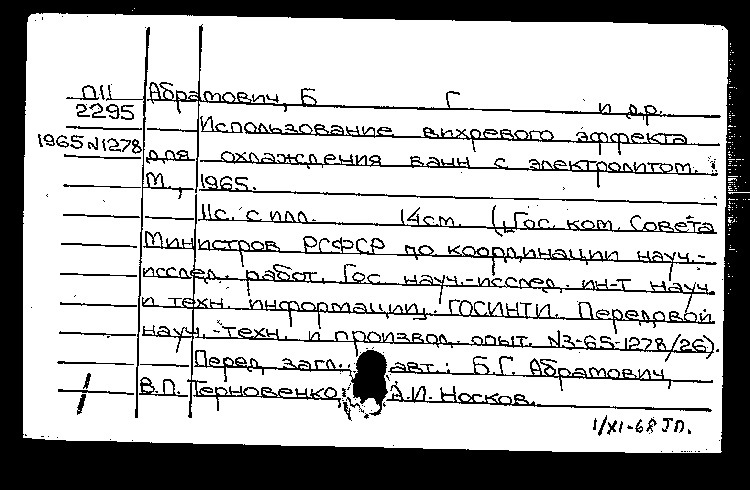 П11 Абрамович, Б Г и др.
2295
Использование вихревого эффекта
1965 N1278 для охлаждения ванн с электролитом.
М., 1965.
11с. с илл. 14см. (Гос. ком. Совета
Министров РСФСР по координации науч.-
исслед. работ. Гос науч.-исслед. ин-т науч.
и техн. информации. ГОСИНТИ. Передовой
науч.-техн. и производ. опыт. N3-65-1278/26).
Перед загл. авт.: Б.Г. Абрамович,
В.П. Терновенко, А.И. Носков.
1/XI-68